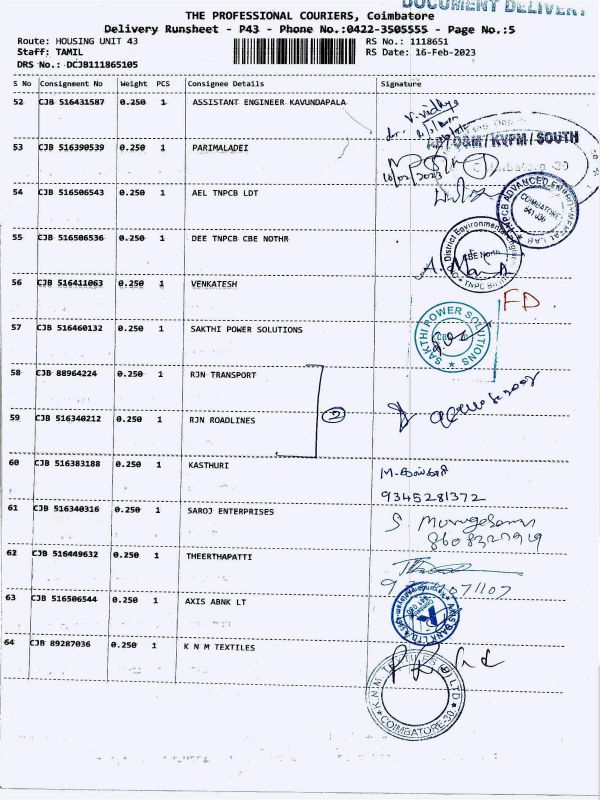 DOCUMENT DELIVERY
THE PROFESSIONAL COURIERS, Coimbatore
Delivery Runsheet - P43 - Phone No.:0422-3505555 - Page No.:5
Route: HOUSING UNIT 43 RS No.: 1118651
Staff: TAMIL RS Date: 16-Feb-2023
DRS No.: DCJB111865105
S No Consignment No Weight PCS Consignee Details Signature
52 CJB 516431587 0.250 1 ASSISTANT ENGINEER KAVUNDAPALA
53 CJB 516390539 0.250 1 PARIMALADEI
O&M/KVPM/SOUTH
54 CJB 516506543 0.250 1 AEL TNPCB LDT
TNPCB ADVANCED ENVIRONMENTAL LAB
COIMBATORE
55 CJB 516506536 0.250 1 DEE TNPCB CBE NOTHR
District Environmental Engineer
CBE North
56 CJB 516411063 0.250 1 VENKATESH
FD.
57 CJB 516460132 0.250 1 SAKTHI POWER SOLUTIONS
SAKTHI POWER SOLUTIONS
58 CJB 88964224 0.250 1 RJN TRANSPORT
2
59 CJB 516340212 0.250 1 RJN ROADLINES
60 CJB 516383188 0.250 1 KASTHURI
9345281372
61 CJB 516340316 0.250 1 SAROJ ENTERPRISES
S Murugesan
62 CJB 516449632 0.250 1 THEERTHAPATTI
63 CJB 516506544 0.250 1 AXIS ABNK LT
AXIS BANK LTD
64 CJB 89287036 0.250 1 K N M TEXTILES
K.N.M. TEXTILES (P) LTD
COIMBATORE-30